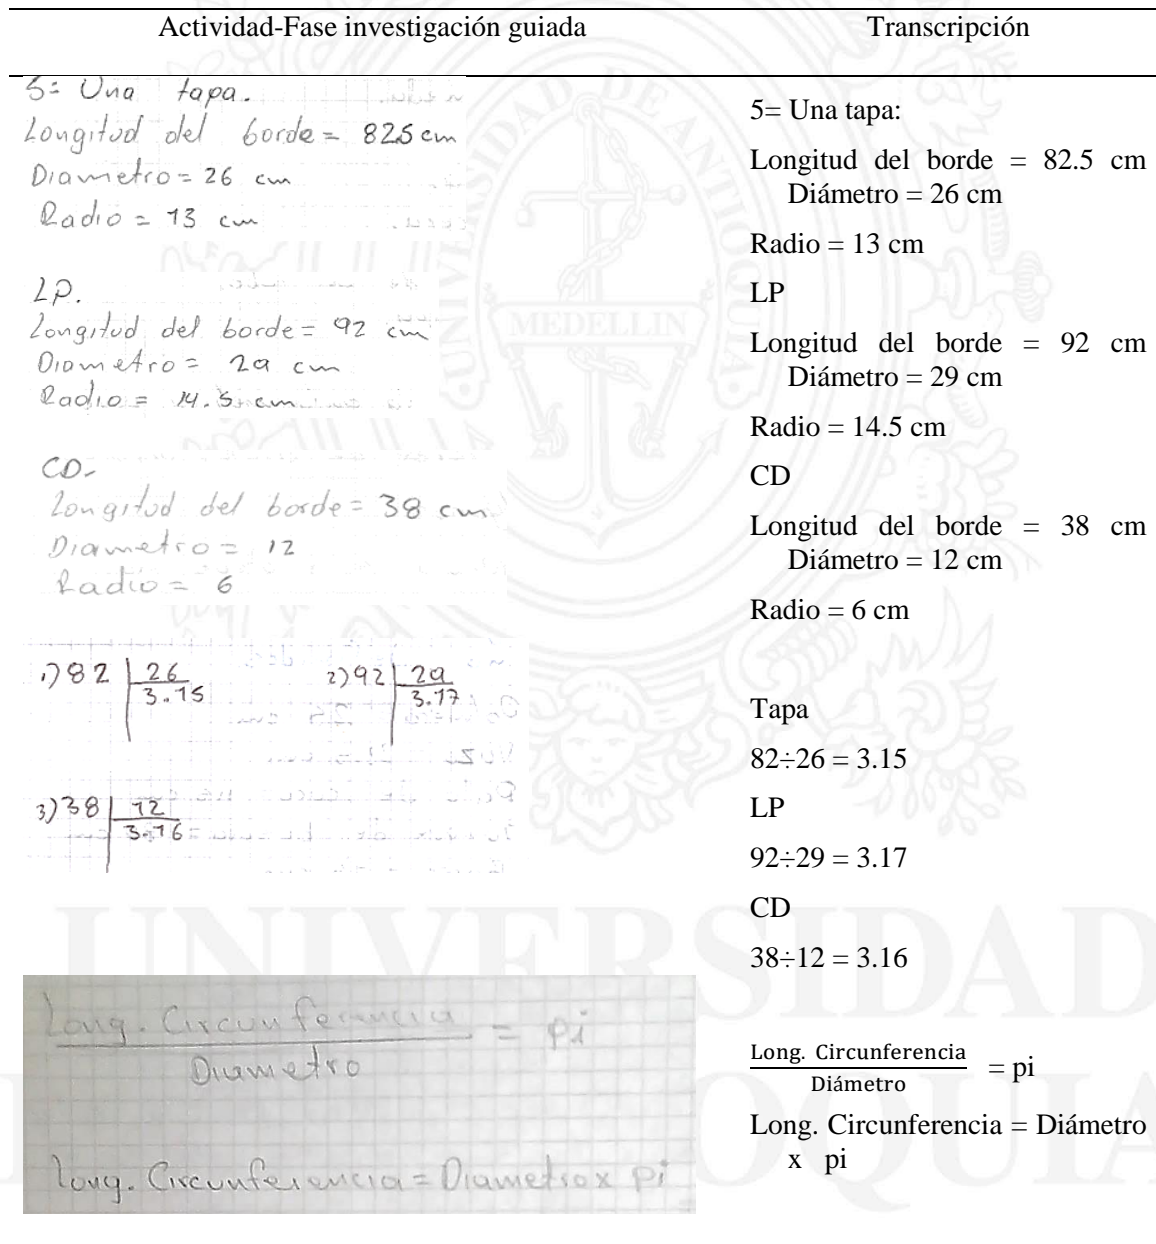 Actividad-Fase investigación guiada
Transcripción
5= Una tapa.
Longitud del borde = 825 cm
Diametro = 26 cm
Radio = 13 cm
LP.
Longitud del borde = 92 cm
Diametro = 29 cm
Radio = 14.5 cm
CD-
Longitud del borde = 38 cm
Diametro = 12
Radio = 6
1) 82 26
3.15
2) 92 29
3.17
3) 38 12
3.16
Long. Circunferencia = pi
Diametro
Long. Circunferencia = Diametro x pi
5= Una tapa:
Longitud del borde = 82.5 cm
Diámetro = 26 cm
Radio = 13 cm
LP
Longitud del borde = 92 cm
Diámetro = 29 cm
Radio = 14.5 cm
CD
Longitud del borde = 38 cm
Diámetro = 12 cm
Radio = 6 cm
Tapa
82÷26 = 3.15
LP
92÷29 = 3.17
CD
38÷12 = 3.16
Long. Circunferencia = pi
Diámetro
Long. Circunferencia = Diámetro
x pi
UNIVERSIDAD DE ANTIOQUIA
MEDELLIN
UNIVERSIDAD